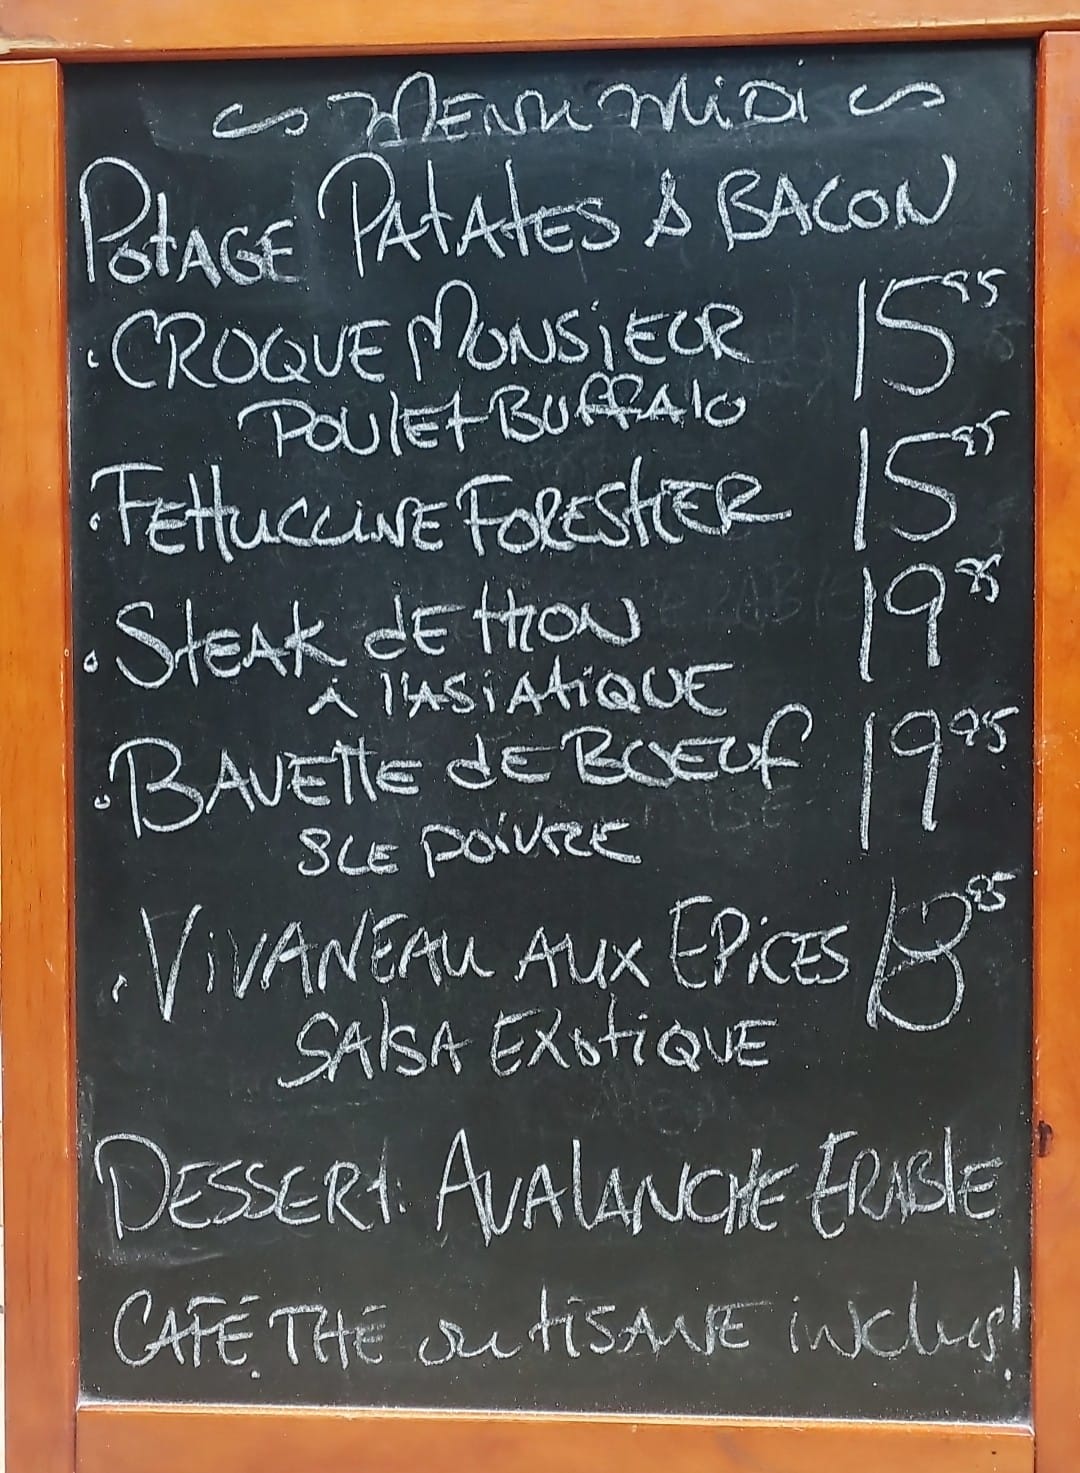 Menu Midi
Potage Patates & Bacon
· Croque Monsieur 15 95
Poulet Buffalo
· Fettuccine Forestier 15 95
· Steak de thon 19 95
à l'asiatique
· Bavette de Boeuf 19 95
sce poivre
· Vivaneau aux Epices 18 95
Salsa Exotique
Dessert: Avalanche Erable
Café, Thé ou tisane inclus!